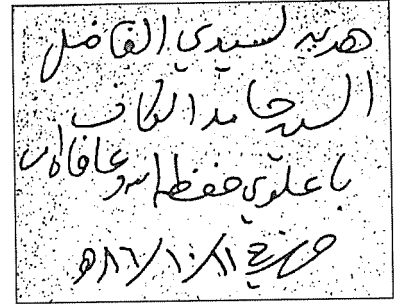 هديه لسيدي الفاضل
السيد حامد الكاف
باعلوي حفظه الله وعافاه
٨٦/١٠/٨١ه